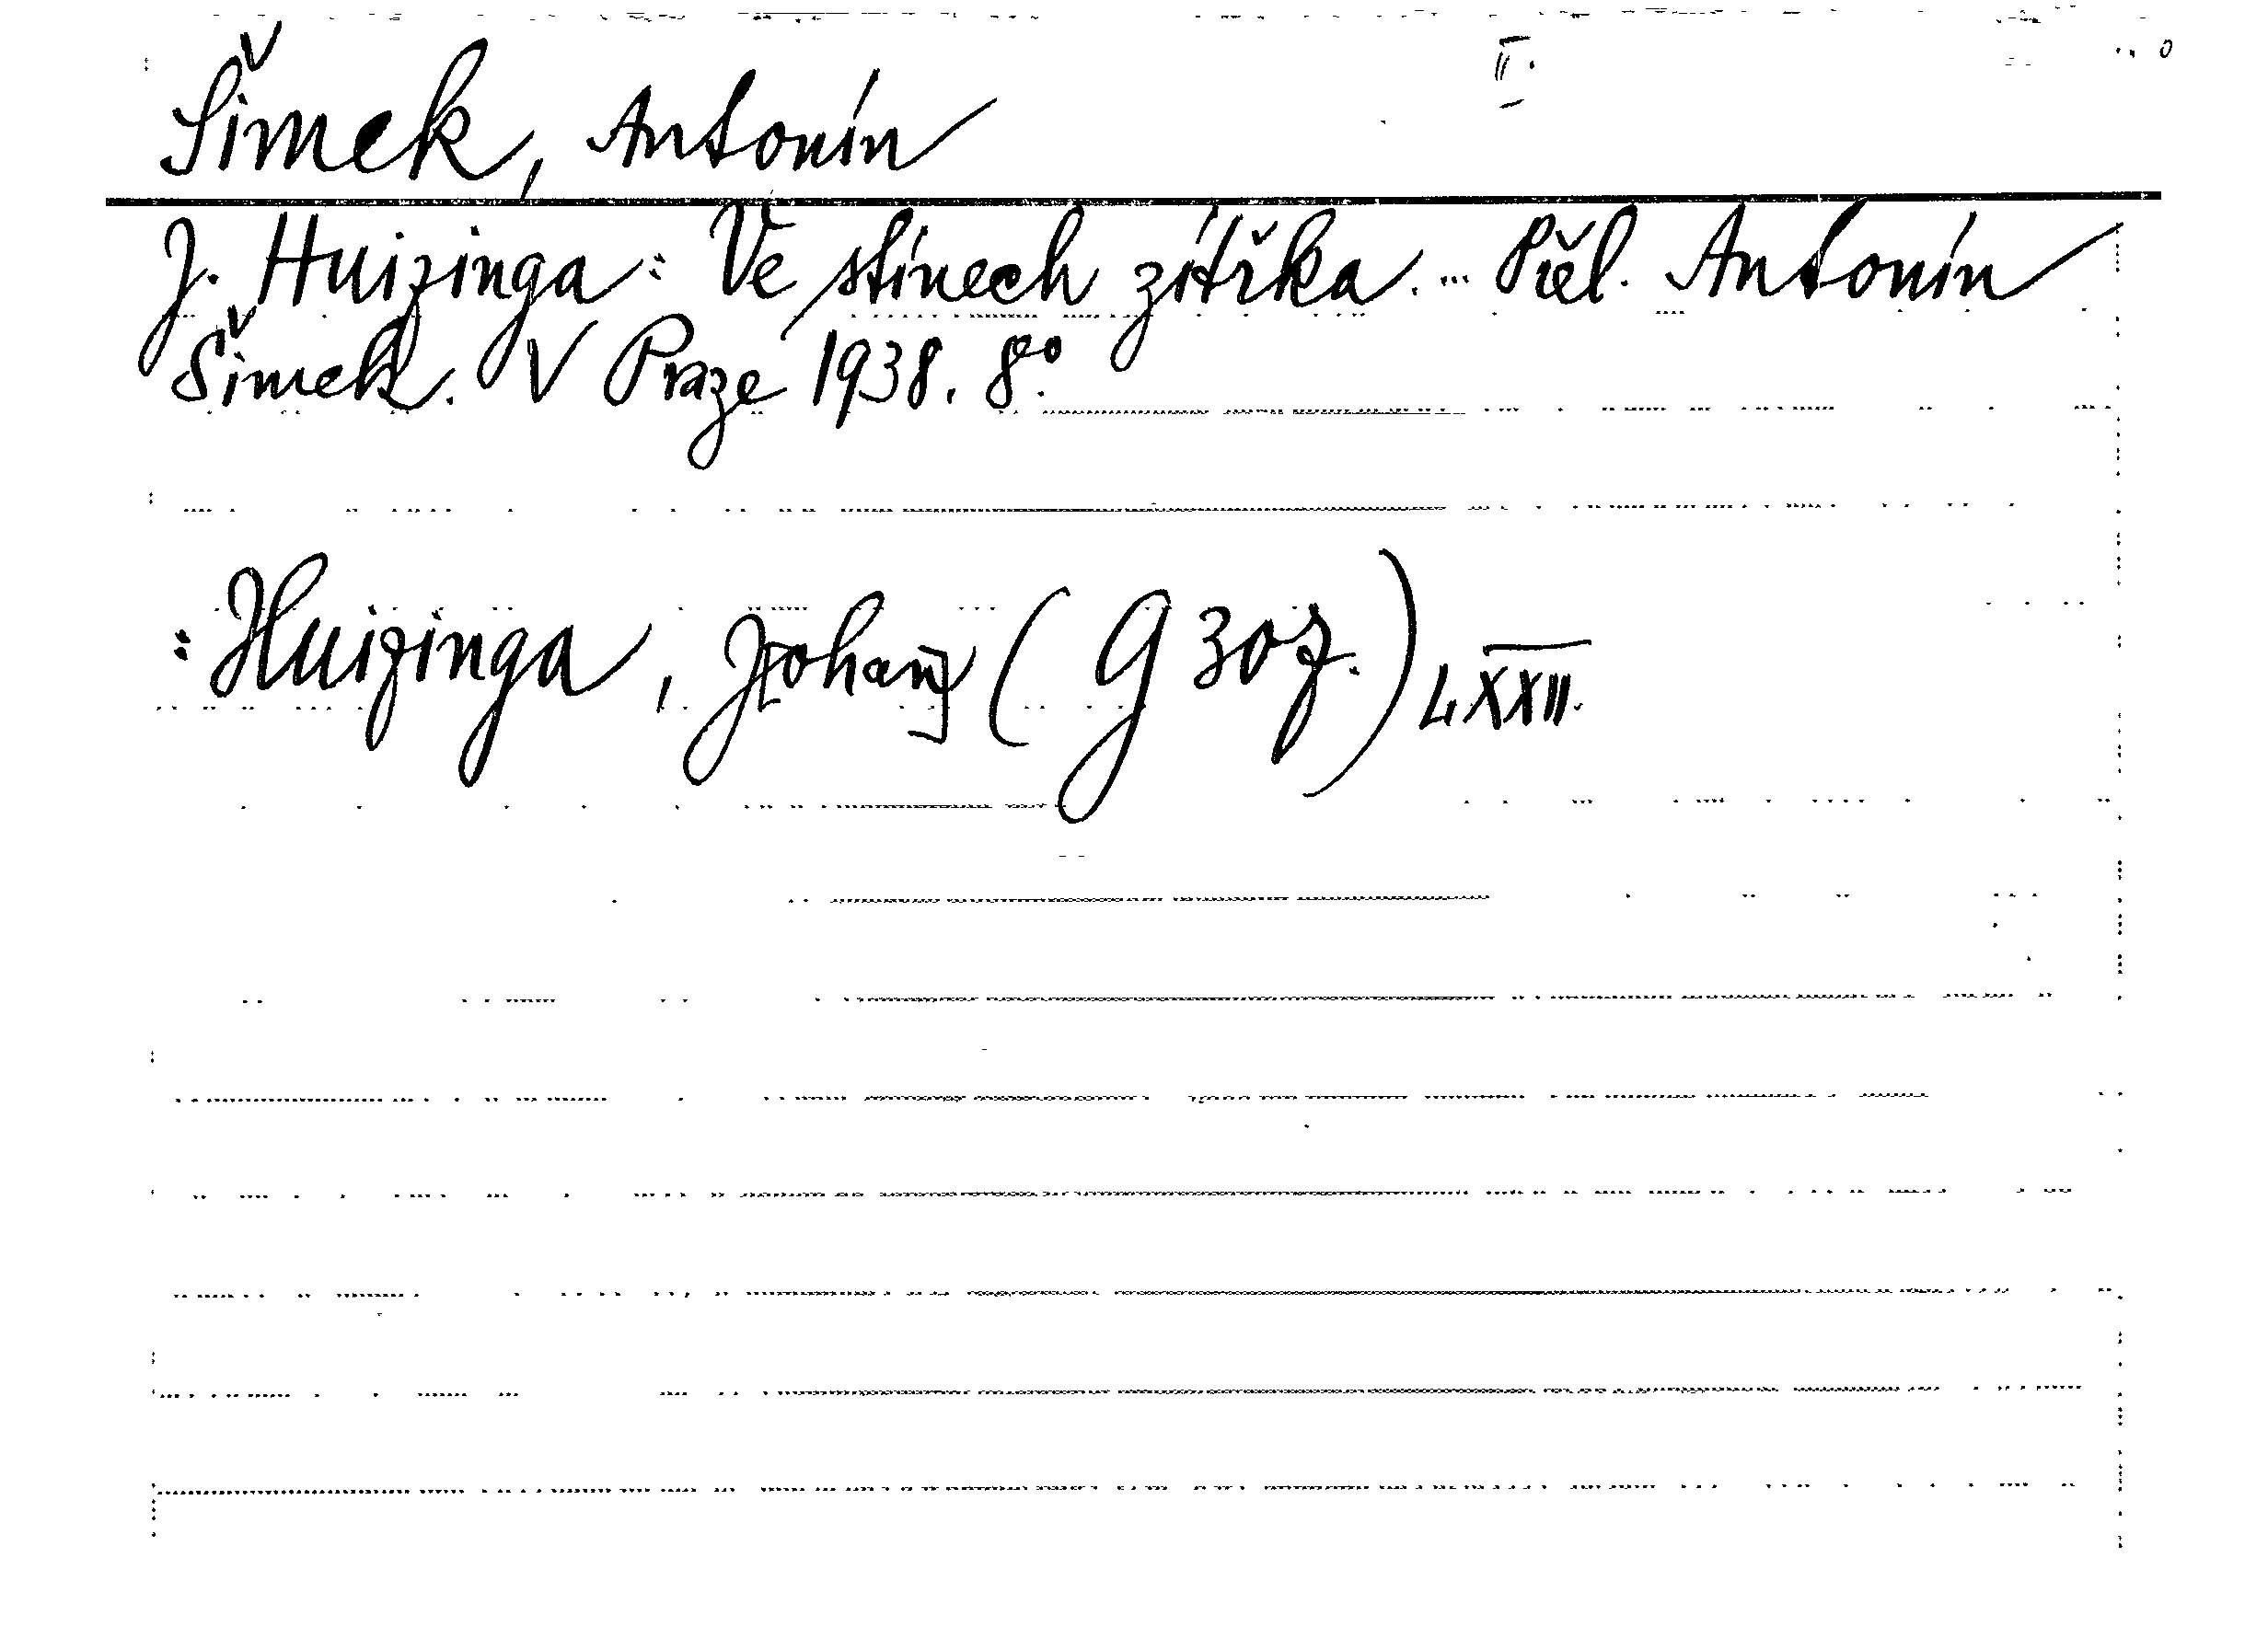 Šimek, Antonín
II.
J. Huizinga: Ve stínech zítřka. ... Přel. Antonín
Šimek. V Praze 1938. 8°.
: Huizinga, J[ohan] (